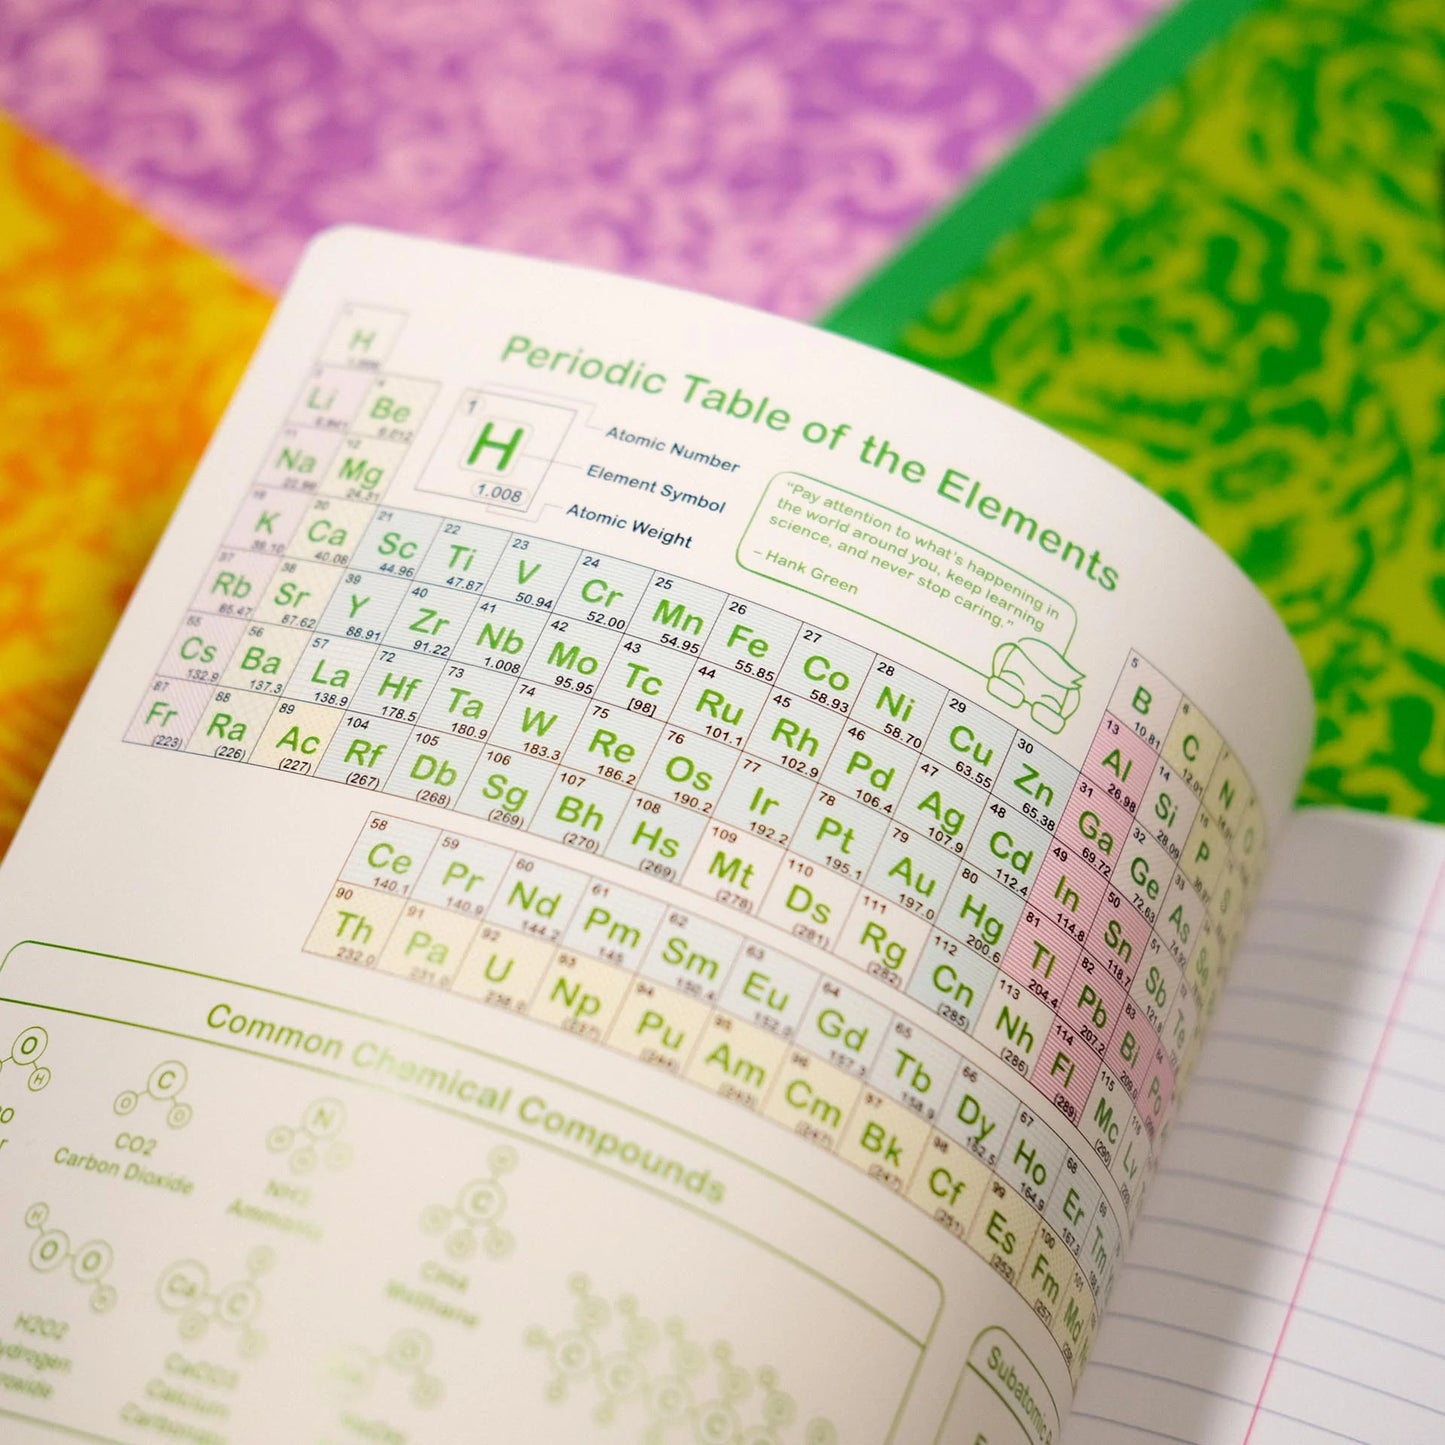 Periodic Table of the Elements
H
1.008
Li Be
9.012
1
H
1.008
Atomic Number
Element Symbol
Atomic Weight
"Pay attention to what's happening in
the world around you, keep learning
science, and never stop caring."
– Hank Green
Na Mg
24.31
K Ca Sc Ti V Cr Mn Fe Co Ni Cu Zn
20 21 22 23 24 25 26 27 28 29 30
40.08 44.96 47.87 50.94 52.00 54.95 55.85 58.93 58.70 63.55 65.38
37 38 39 40 41 42 43 44 45 46 47 48
Rb Sr Y Zr Nb Mo Tc Ru Rh Pd Ag Cd
85.47 87.62 88.91 91.22 1.008 95.95 [98] 101.1 102.9 106.4 107.9 112.4
55 56 57 72 73 74 75 76 77 78 79 80
Cs Ba La Hf Ta W Re Os Ir Pt Au Hg
132.9 137.3 138.9 178.5 180.9 183.3 186.2 190.2 192.2 195.1 197.0 200.6
87 88 89 104 105 106 107 108 109 110 111 112 113 114 115 116
Fr Ra Ac Rf Db Sg Bh Hs Mt Ds Rg Cn Nh Fl Mc Lv
(223) (226) (227) (267) (268) (269) (270) (269) (278) (281) (282) (285) (286) (289) (290)
5 6 7
B C N
10.81 12.01
13 14 15
Al Si P
26.98 28.09
31 32 33
Ga Ge As Se
69.72 72.63 74.92
49 50 51
In Sn Sb Te
114.8 118.7 121.8
81 82 83 84
Tl Pb Bi Po
204.4 207.2 209.0
58 59 60 61 62 63 64 65 66 67 68 69
Ce Pr Nd Pm Sm Eu Gd Tb Dy Ho Er Tm
140.1 140.9 144.2 145 150.4 152.0 157.3 158.9 162.5 164.9 167.3
90 91 92 93 94 95 96 97 98 99 100 101
Th Pa U Np Pu Am Cm Bk Cf Es Fm Md
232.0 231.0 238.0 (237) (244) (243) (247) (247) (251) (252) (257) (258)
Common Chemical Compounds
O
H
C
O O
CO2
Carbon Dioxide
N
NH3
Ammonia
C
CH4
Methane
H
O O
H
H2O2
Ca C
CaCO3
Calcium
Subatomic